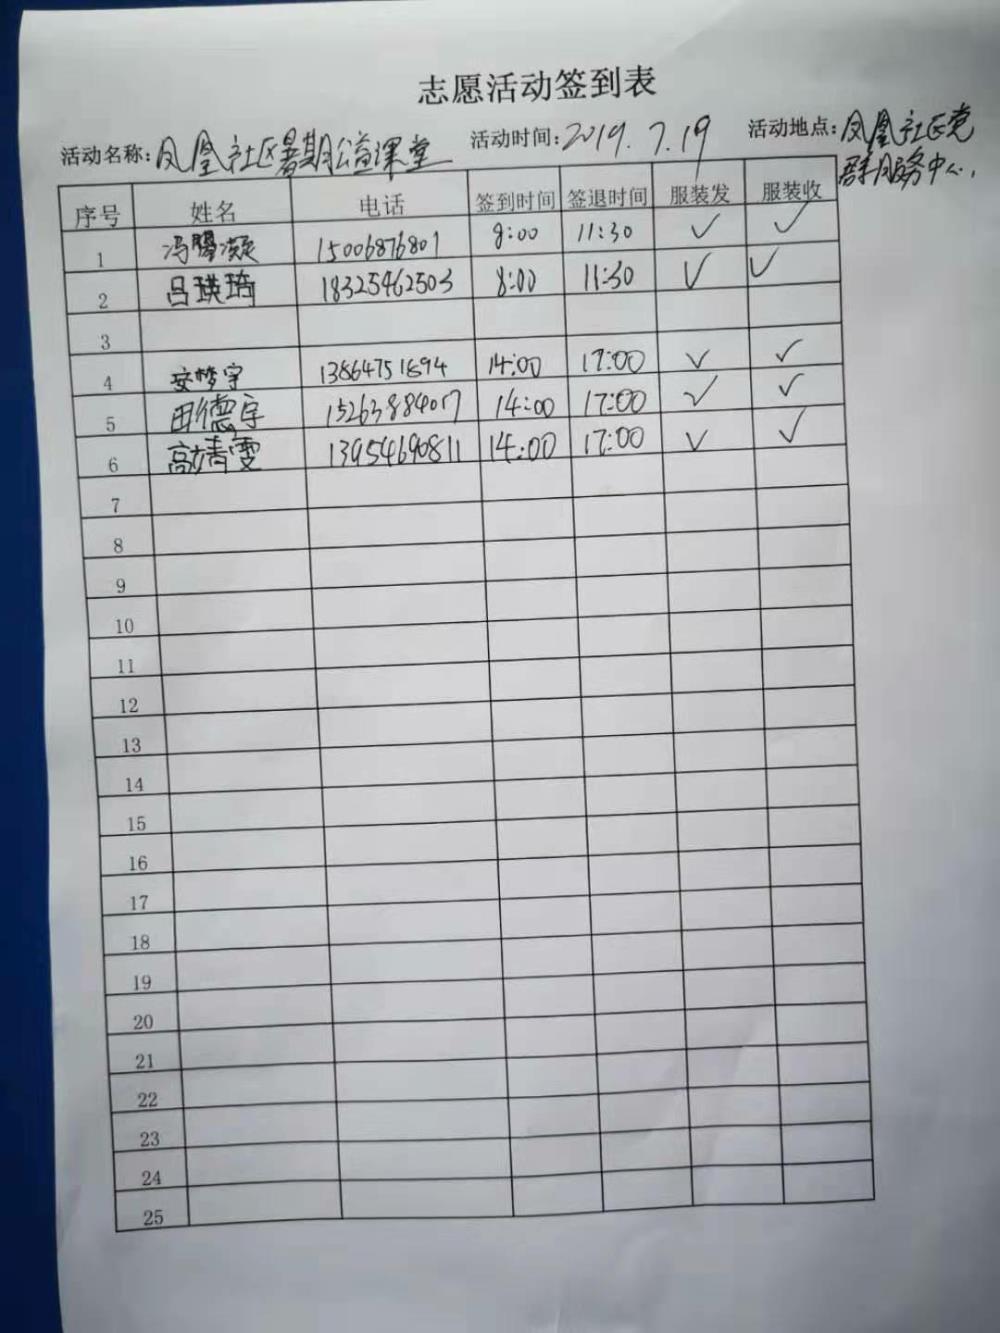 志愿活动签到表
活动名称:凤凰社区暑期公益课堂 活动时间:2019.7.19 活动地点:凤凰社区党
群服务中心.
序号 姓名 电话 签到时间 签退时间 服装发 服装收
1 冯凝 15006876801 8:00 11:30 ✓ ✓
2 吕琪琦 18325462503 8:00 11:30 ✓ ✓
3
4 安梦宇 13864751894 14:00 17:00 ✓ ✓
5 田德宇 15263884017 14:00 17:00 ✓ ✓
6 高婧雯 13954690811 14:00 17:00 ✓ ✓
7
8
9
10
11
12
13
14
15
16
17
18
19
20
21
22
23
24
25